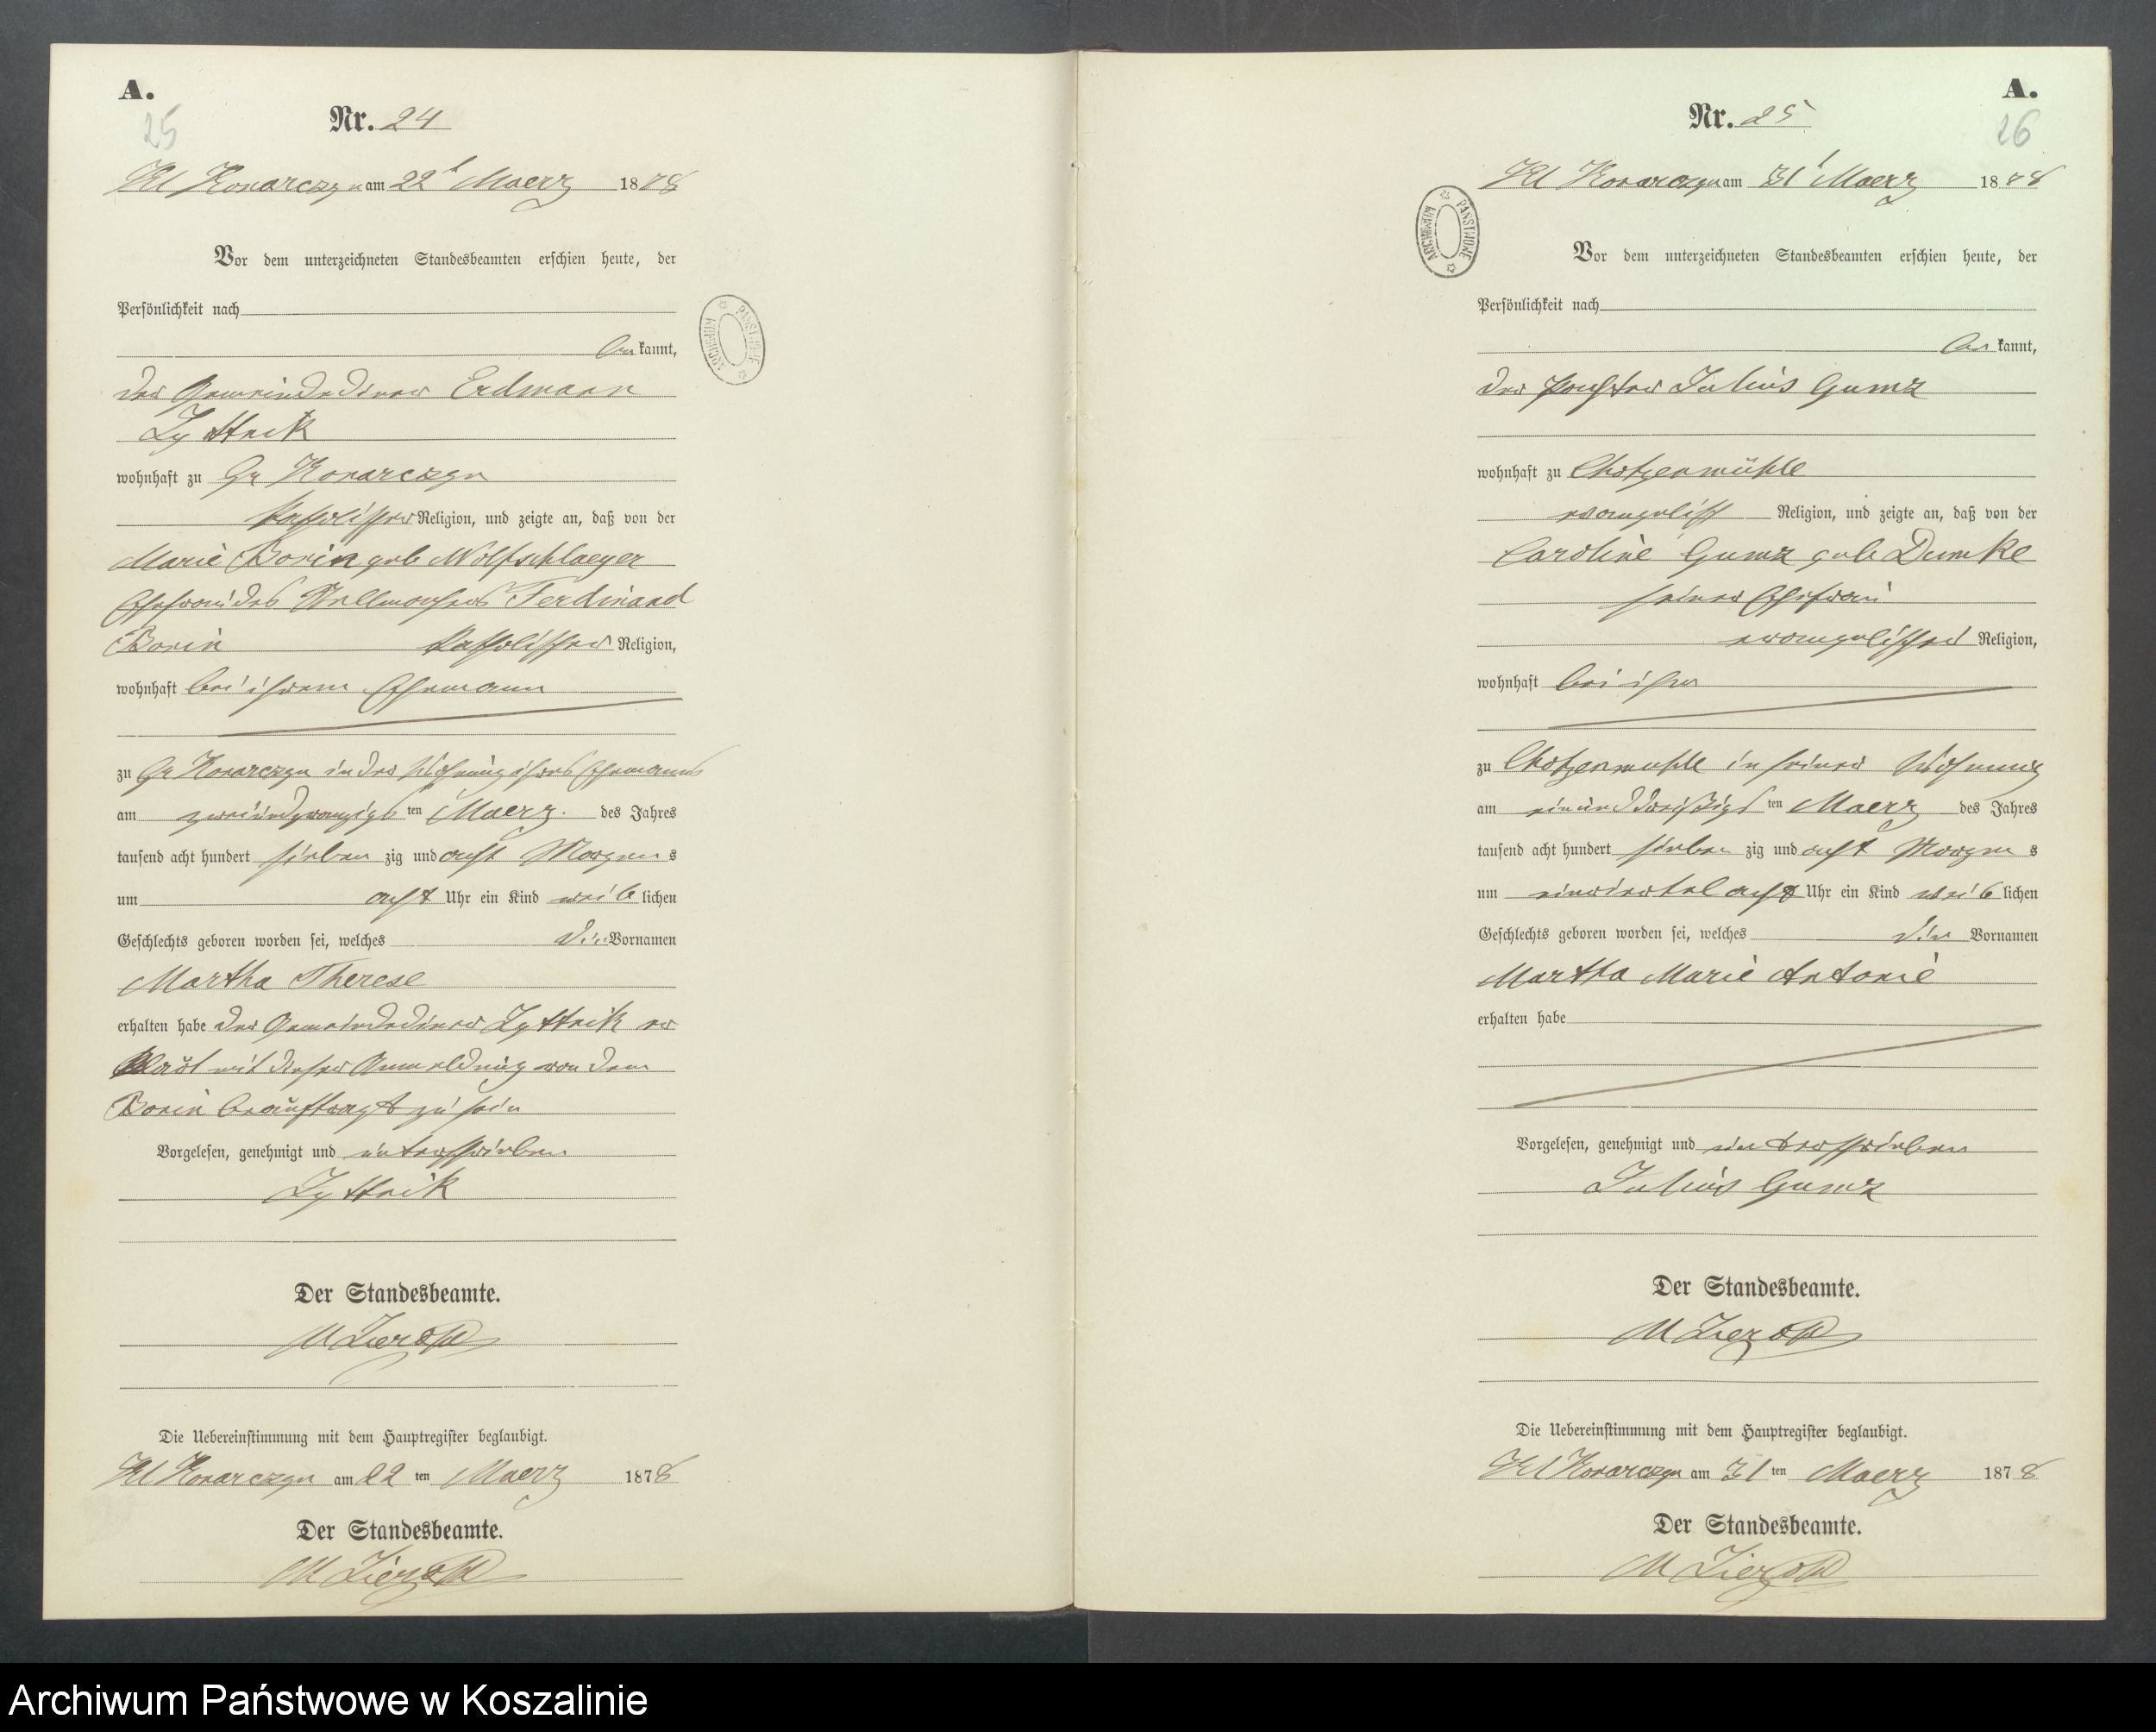 A.
25
Nr. 24
Kl Konarczyn am 22t Maerz 1878
Vor dem unterzeichneten Standesbeamten erschien heute, der
Persönlichkeit nach
be kannt,
der Gemeindediener Erdmann
Zyttrik
wohnhaft zu Gr Konarczyn
katholischer Religion, und zeigte an, daß von der
Marie Borin geb Wolfschlaeger
Ehefrau des Ferdinand
Borin katholischer Religion,
wohnhaft bei ihrem Ehemann
zu Gr Konarczyn in der Wohnung ihres Ehemanns
am zweiundzwanzigs ten Maerz. des Jahres
tausend acht hundert sieben zig und acht Morgens
um acht Uhr ein Kind weib lichen
Geschlechts geboren worden sei, welches die Vornamen
Martha Therese
erhalten habe der Gemeindediener Zyttrik er
klärt mit dieser Anmeldung von dem
Borin beauftragt zu sein
Vorgelesen, genehmigt und unterschrieben
Zyttrik
Der Standesbeamte.
Die Uebereinstimmung mit dem Hauptregister beglaubigt.
Kl Konarczyn am 22 ten Maerz 1878
Der Standesbeamte.
ARCHIWUM PAŃSTWOWE
A.
26
Nr. 25
Kl Konarczyn am 31t Maerz 1878
Vor dem unterzeichneten Standesbeamten erschien heute, der
Persönlichkeit nach
be kannt,
der Julius Gumz
wohnhaft zu Chotzenmühle
evangelisch Religion, und zeigte an, daß von der
Caroline Gumz geb Dumke
seiner Ehefrau
evangelischer Religion,
wohnhaft bei ihm
zu Chotzenmühle in seiner Wohnung
am einunddreißigs ten Maerz des Jahres
tausend acht hundert sieben zig und acht Morgens
um einviertel acht Uhr ein Kind weib lichen
Geschlechts geboren worden sei, welches die Vornamen
Martha Marie Antonie
erhalten habe
Vorgelesen, genehmigt und unterschrieben
Julius Gumz
Der Standesbeamte.
Die Uebereinstimmung mit dem Hauptregister beglaubigt.
Kl Konarczyn am 31 ten Maerz 1878
Der Standesbeamte.
ARCHIWUM PAŃSTWOWE
Archiwum Państwowe w Koszalinie